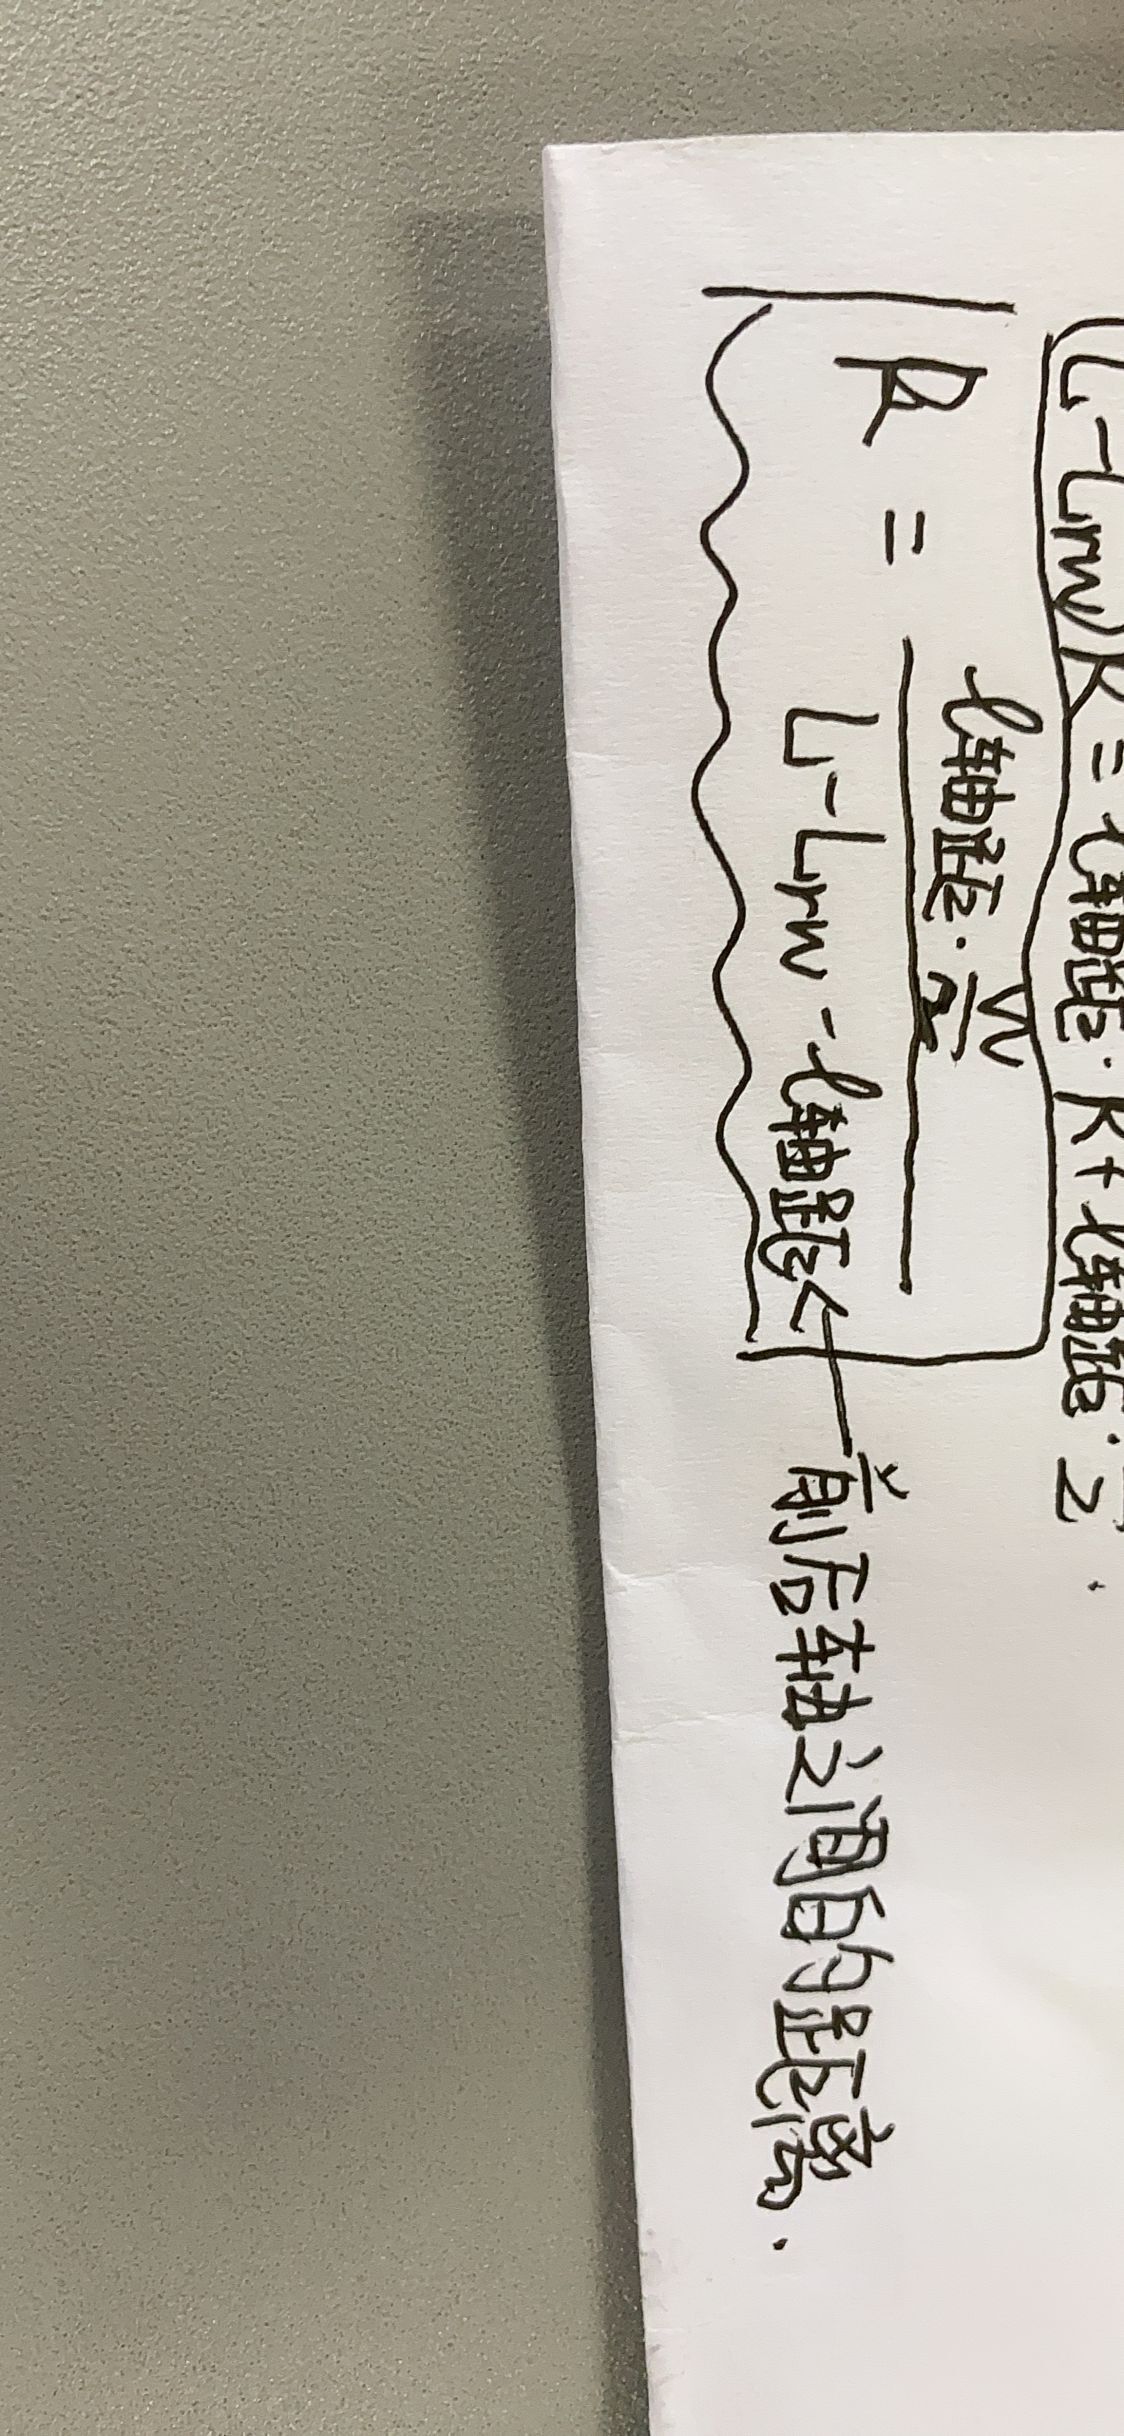 (L-Lrw)R = l轴距·R + l轴距·
2.
R = l轴距·W/2
L-Lrw-l轴距 ← 前后轴之间的距离.